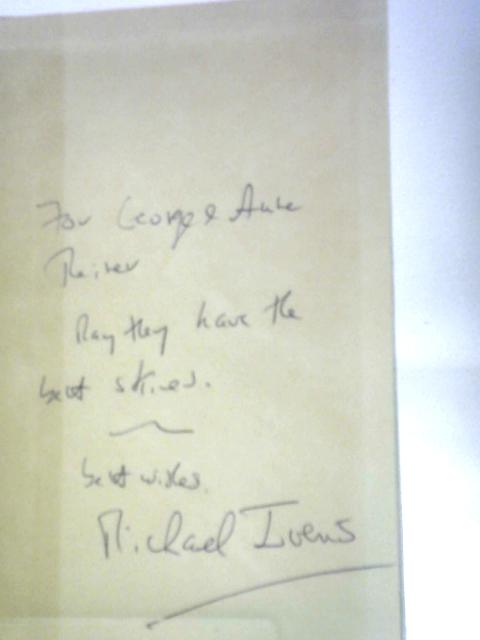 For George & Anne
Reiser
May they have the
best
best wishes.
Michael Ivens